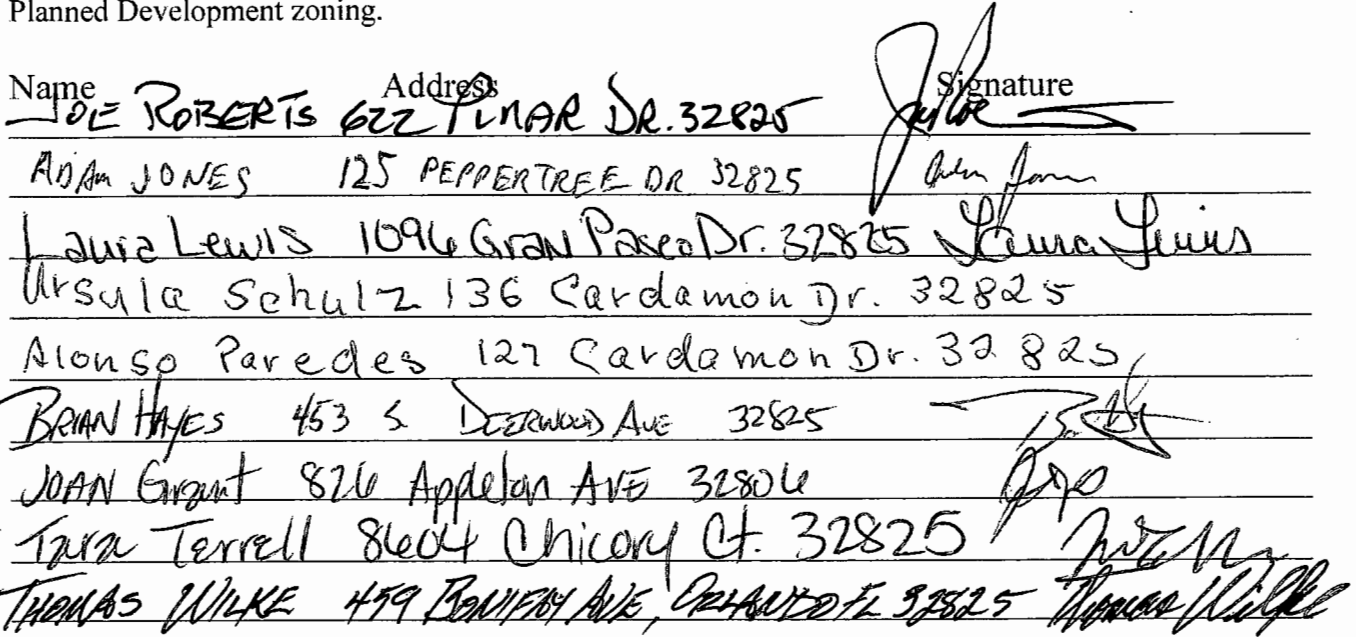 Planned Development zoning.
Name Address Signature
JOE ROBERTS 622 PINAR DR. 32825
ADAM JONES 125 PEPPERTREE DR 32825 Adam Jones
Laura Lewis 1096 Gran Paseo Dr. 32825 Laura Lewis
Ursula Schulz 136 Cardamon Dr. 32825
Alonso Paredes 127 Cardamon Dr. 32825
BRIAN HAYES 453 S DEERWOOD AVE 32825
JOAN Grant 826 Appleton AVE 32806
Tara Terrell 8604 Chicory Ct. 32825
THOMAS WILKE 459 BONIFAY AVE, ORLANDO FL 32825 Thomas Wilke